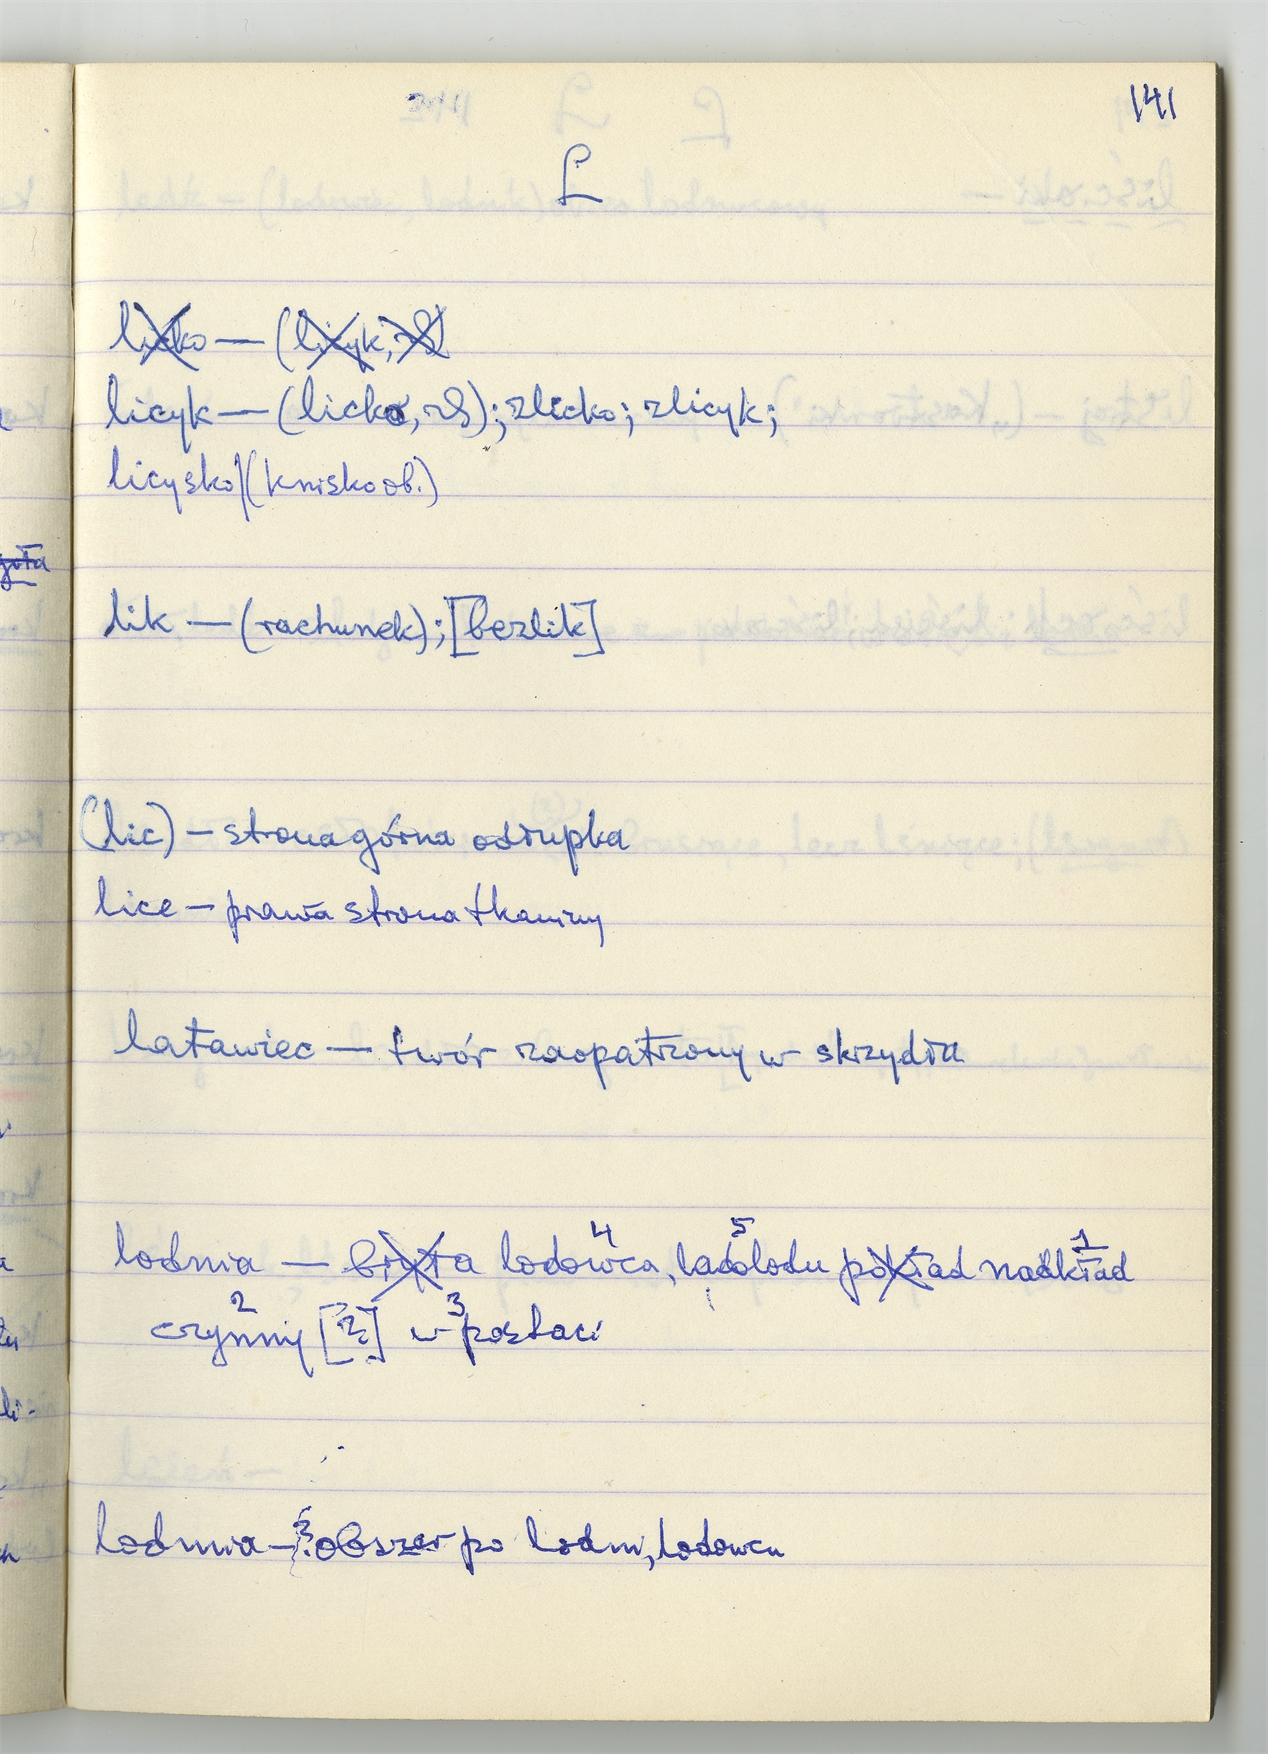 141
L
licko — (licyk, zS)
licyk — (licko, zS); zlicko; zlicyk;
licysko (knisko ob.)
lik — (rachunek); [bezlik]
(lic) — strona górna odziupka
lice — prawa strona tkaniny
latawiec — twór zaopatrzony w skrzydła
4 5 1
lodnia — bryła lodowca, lądolodu pokład nadkład
2 3
czynny [?] w postaci
lodnia — obszar po lodni, lodowcu